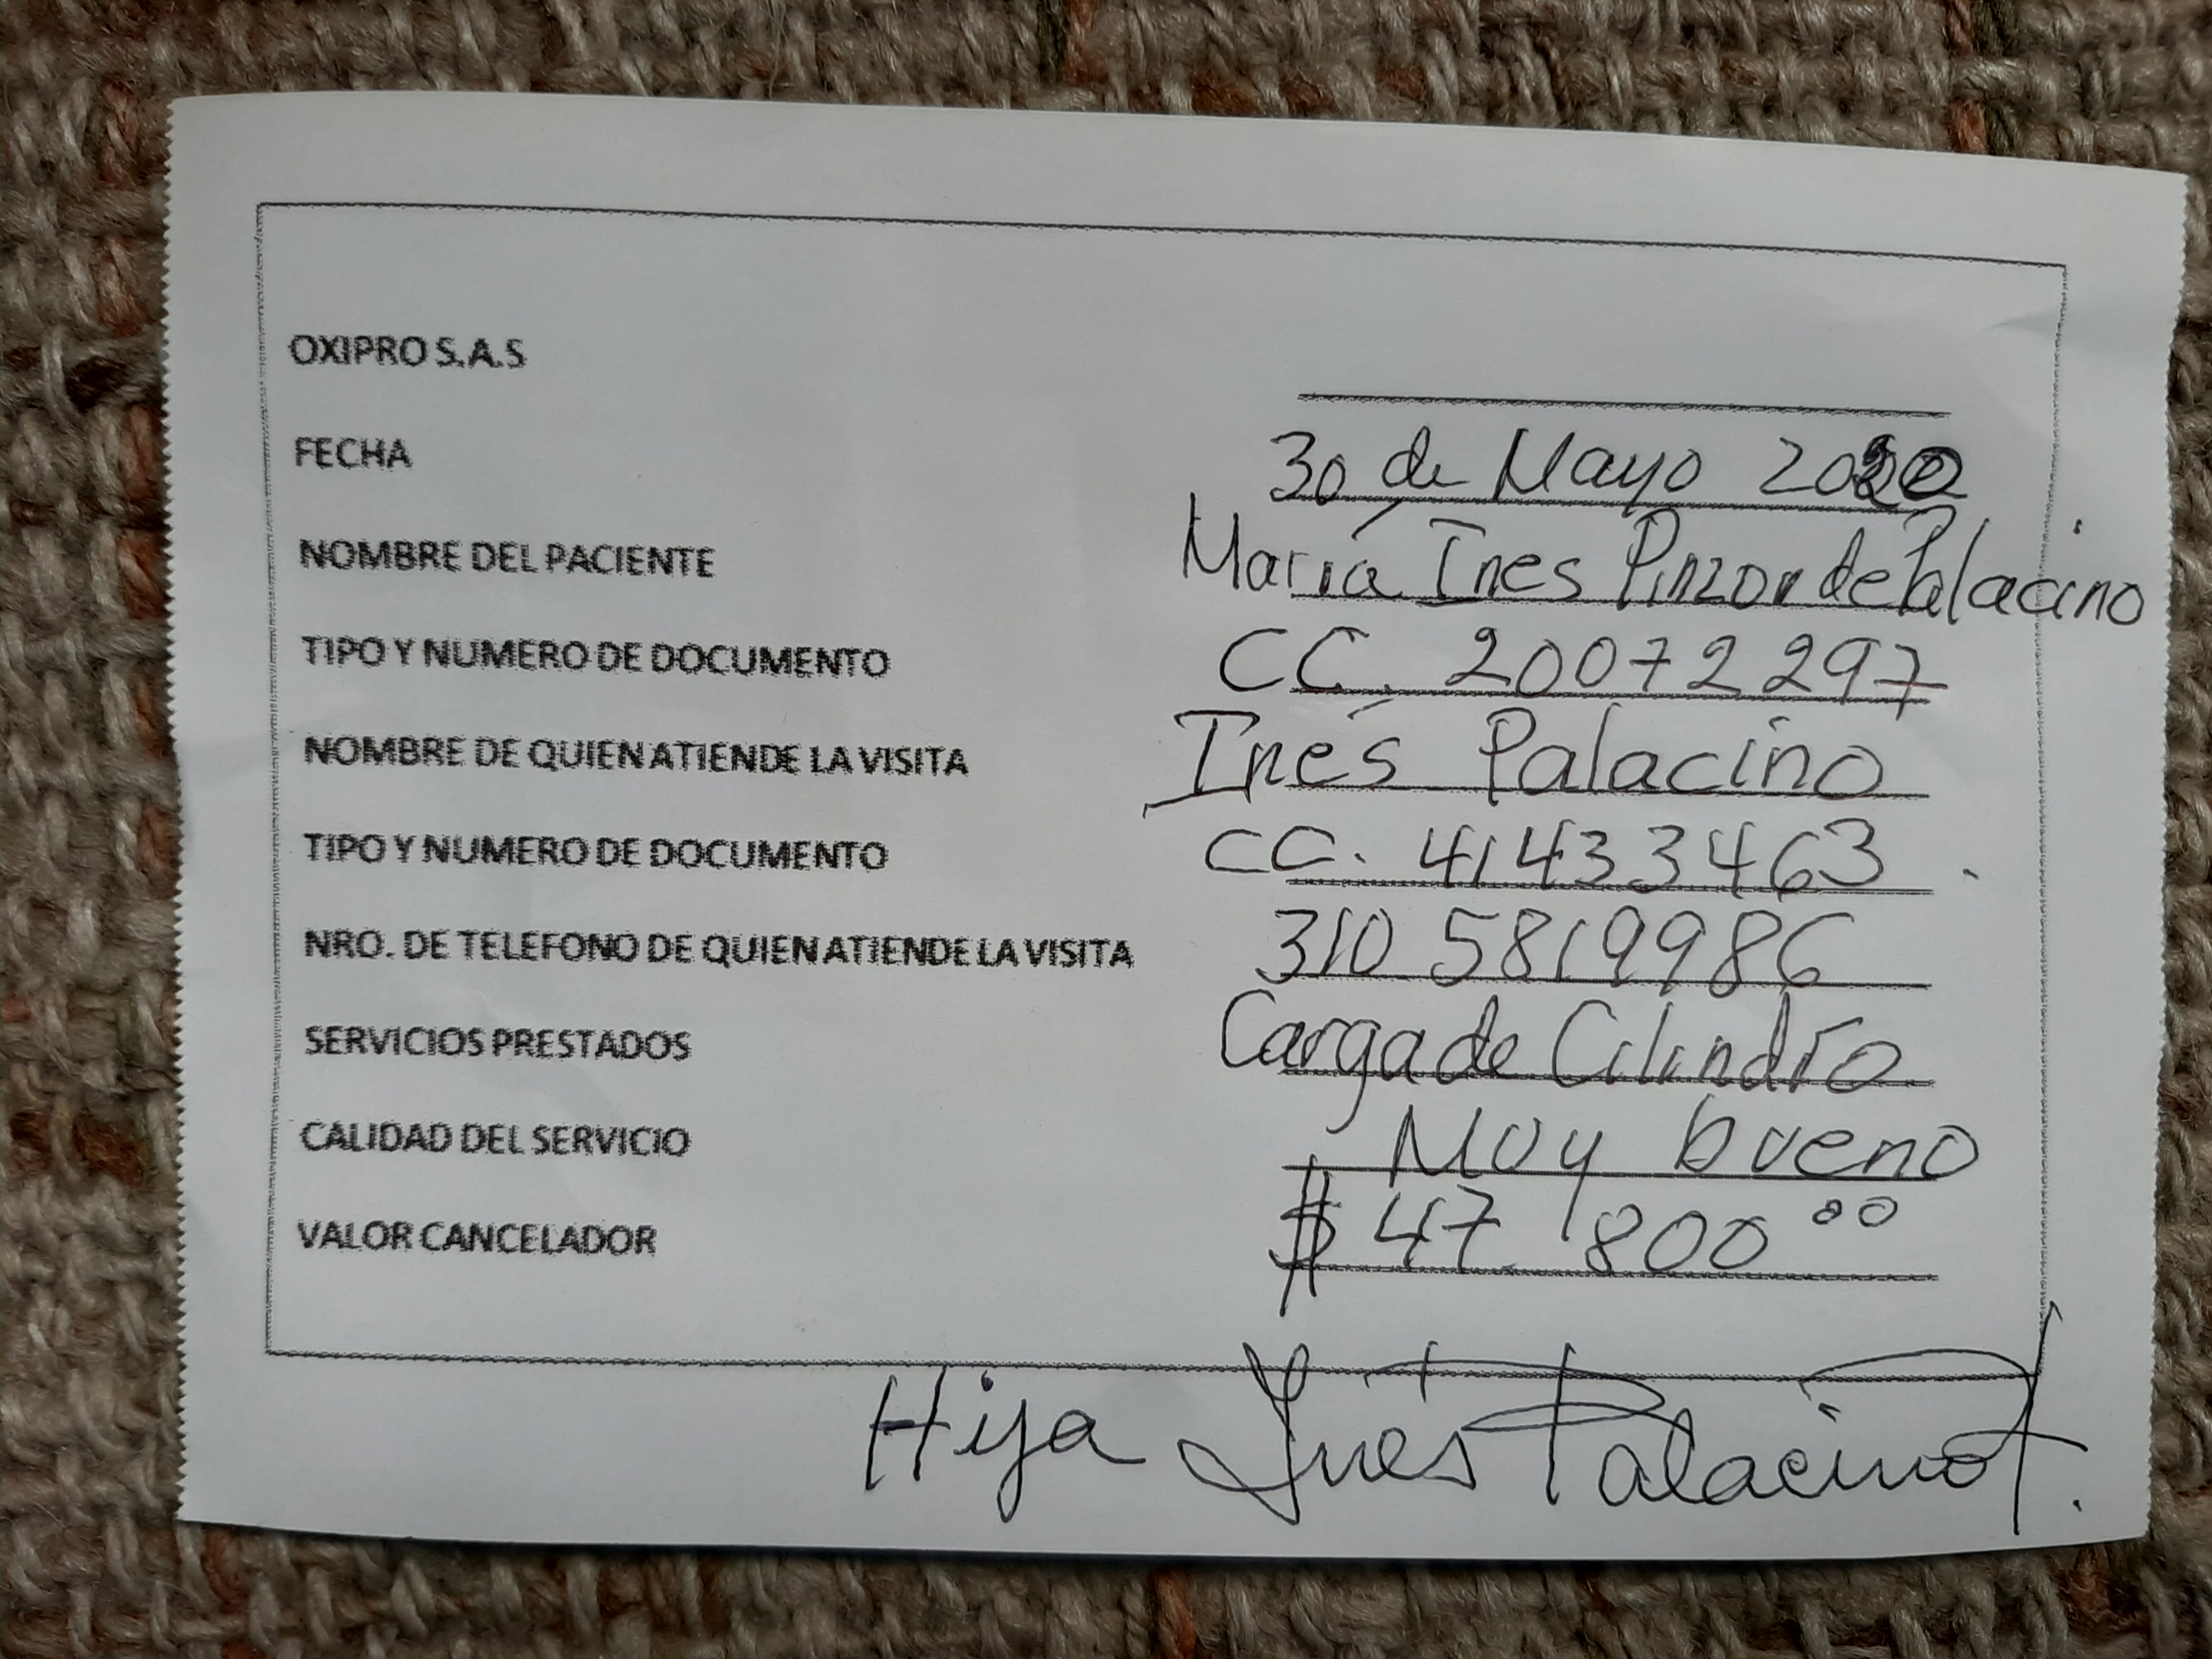 OXIPRO S.A.S
FECHA 30 de Mayo 2020
NOMBRE DEL PACIENTE María Ines Pinzon de Palacino
TIPO Y NUMERO DE DOCUMENTO CC. 20072297
NOMBRE DE QUIEN ATIENDE LA VISITA Inés Palacino
TIPO Y NUMERO DE DOCUMENTO CC. 41433463
NRO. DE TELEFONO DE QUIEN ATIENDE LA VISITA 310 5819986
SERVICIOS PRESTADOS Carga de Cilindro
CALIDAD DEL SERVICIO Muy bueno
VALOR CANCELADOR $ 47 800 00
Hija Inés Palacino